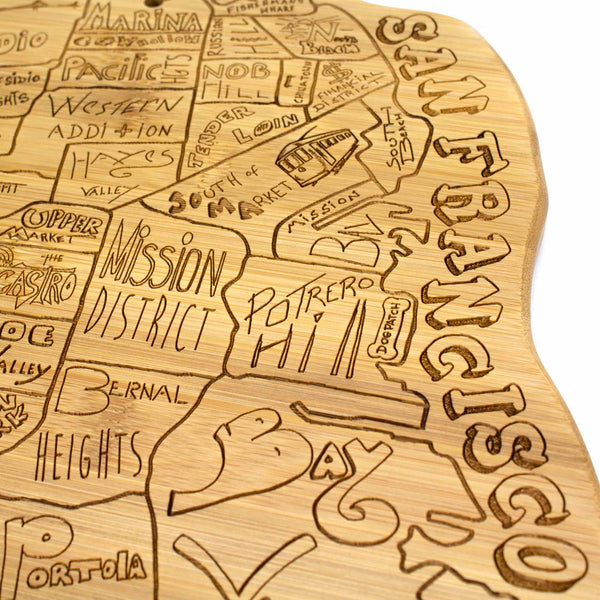 FISHERMANS
WHARF
MARINA
COW HOLLOW
RUSSIAN
HILL
NORTH
BEACH
DIO
PACIFIC
HEIGHTS
SIDIO
GHTS
NOB
HILL
CHINATOWN
FINANCIAL
DISTRICT
WESTERN
ADDITION
TENDER
LOIN
HAYES
VALLEY
SOUTH OF
MARKET
SOUTH
BEACH
GHT
UPPER
MARKET
MISSION
BAY
THE
CASTRO
MISSION
DISTRICT
POTRERO
Hill
DOGPATCH
OE
VALLEY
BERNAL
HEIGHTS
BAY
V
PORTOlA
SAN FRANCISCO